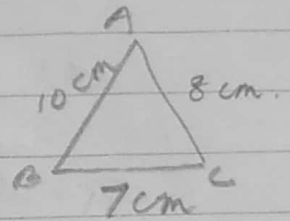 A
10 cm
8 cm.
B
C
7 cm